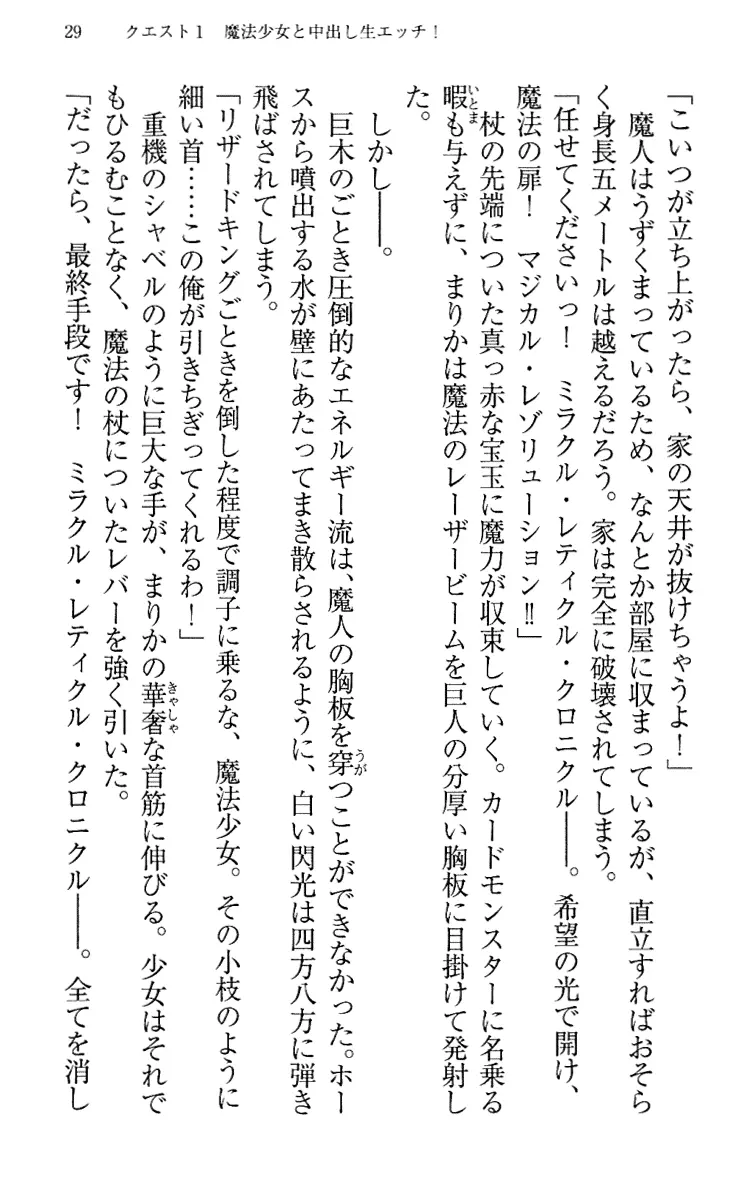 29　クエスト１　魔法少女と中出し生エッチ！
「こいつが立ち上がったら、家の天井が抜けちゃうよ！」
　魔人はうずくまっているため、なんとか部屋に収まっているが、直立すればおそら
く身長五メートルは越えるだろう。家は完全に破壊されてしまう。
「任せてくださいっ！　ミラクル・レティクル・クロニクル――。希望の光で開け、
魔法の扉！　マジカル・レゾリューション‼」
　杖の先端についた真っ赤な宝玉に魔力が収束していく。カードモンスターに名乗る
暇も与えずに、まりかは魔法のレーザービームを巨人の分厚い胸板に目掛けて発射し
た。
　しかし――。
　巨木のごとき圧倒的なエネルギー流は、魔人の胸板を穿つことができなかった。ホー
スから噴出する水が壁にあたってまき散らされるように、白い閃光は四方八方に弾き
飛ばされてしまう。
「リザードキングごときを倒した程度で調子に乗るな、魔法少女。その小枝のように
細い首……この俺が引きちぎってくれるわ！」
　重機のシャベルのように巨大な手が、まりかの華奢な首筋に伸びる。少女はそれで
もひるむことなく、魔法の杖についたレバーを強く引いた。
「だったら、最終手段です！　ミラクル・レティクル・クロニクル――。全てを消し